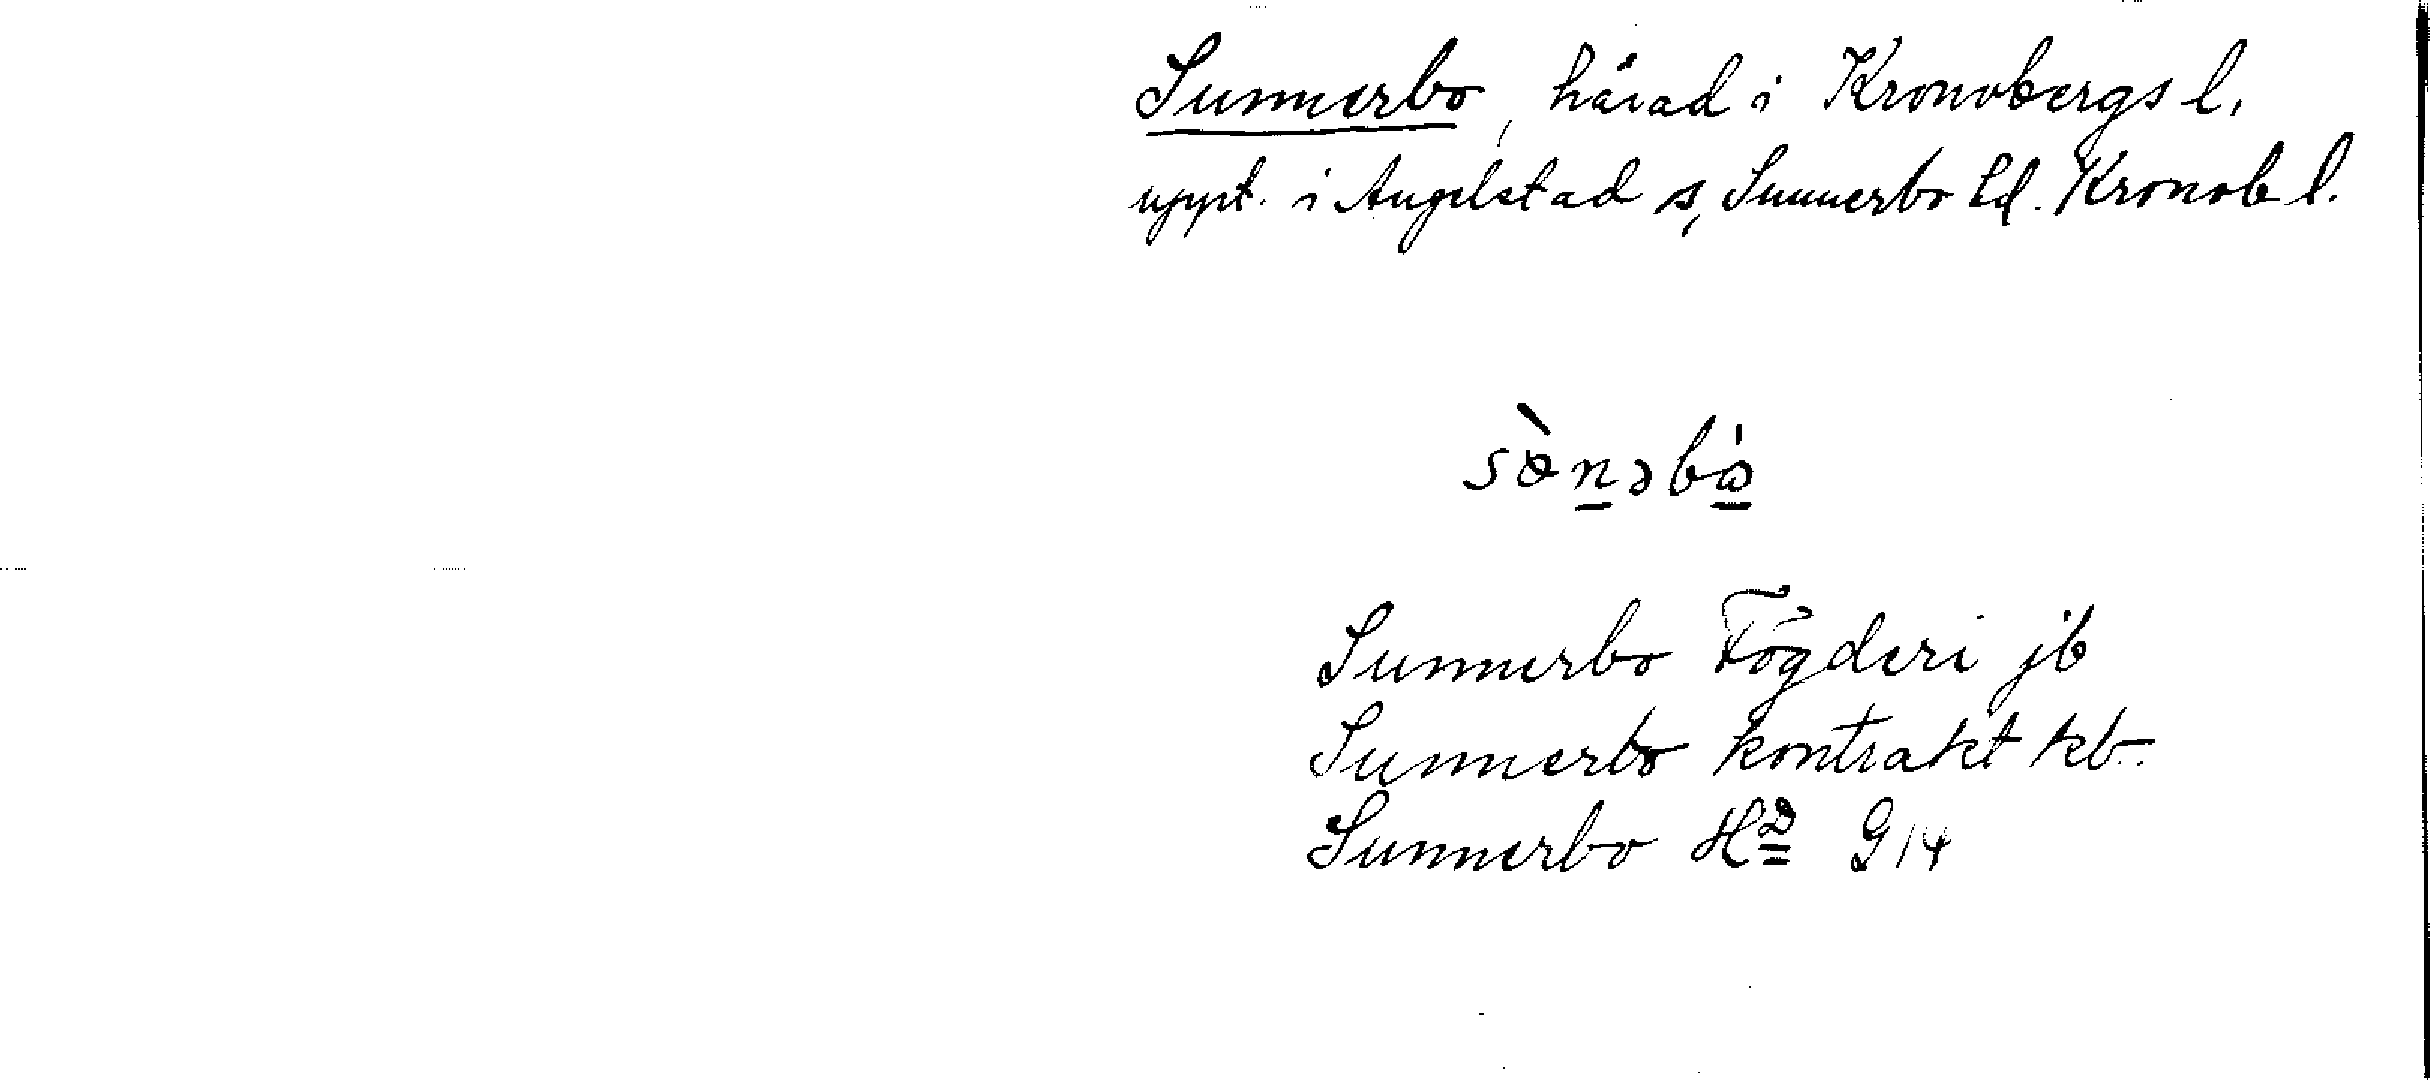 Sunnerbo, härad i Kronobergs l.
uppt. i Angelstad s, Sunnerbo hd. Kronob l.
sònəbò
Sunnerbo Fögderi jb
Sunnerbo kontrakt kb.
Sunnerbo Hd G14